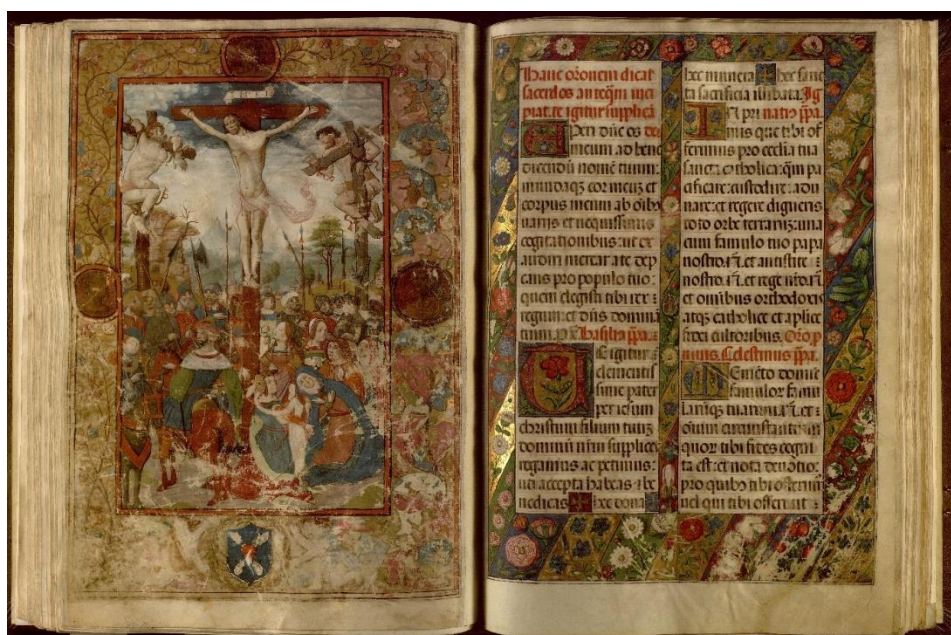 Hanc oronem dicat
sacerdos anteqm inci
piat. te igitur. supplica
Aperi dne os
meum ad bene
dicendū nomē tuum:
mundaqz cor meuz et
corpus meum ab oībus
uanis et nequissimis
cogitationibus: ut ex
audiri merear a te dep
cans pro populo tuo:
quem elegisti tibi rex
regum: et dūs dominā
tium
Te igitur
clementis
sime pater
per iesum
christum filium tuuz
dominū nrm supplices
rogamus ac petimus:
uti accepta habeas et be
nedicas hec dona
hec munera hec sanc
ta sacrificia illibata.
In primis que tibi of
ferimus pro ecclīa tua
sancta catholica: qm pa
cificare: custodire: adu
nare: et regere digneris
toto orbe terrarūz: una
cum famulo tuo papa
nostro. et antistite
nostro. et rege nro
et omībus orthodoxis
atqz catholice et aplice
fidei cultoribus.
Memēto domīe
famulor famu
larūqz tuarum et
oīum circumstantium
quor tibi fides cogni
ta est: et nota deuotio:
pro quibz tibi offerimus
uel qui tibi offerunt